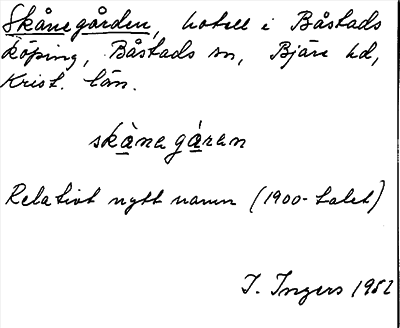 Skånegården, hotell i Båstads
köping, Båstads sn, Bjäre hd,
Krist. län.
skånagáran
Relativt nytt namn (1900-talet)
I. Ingers 1982